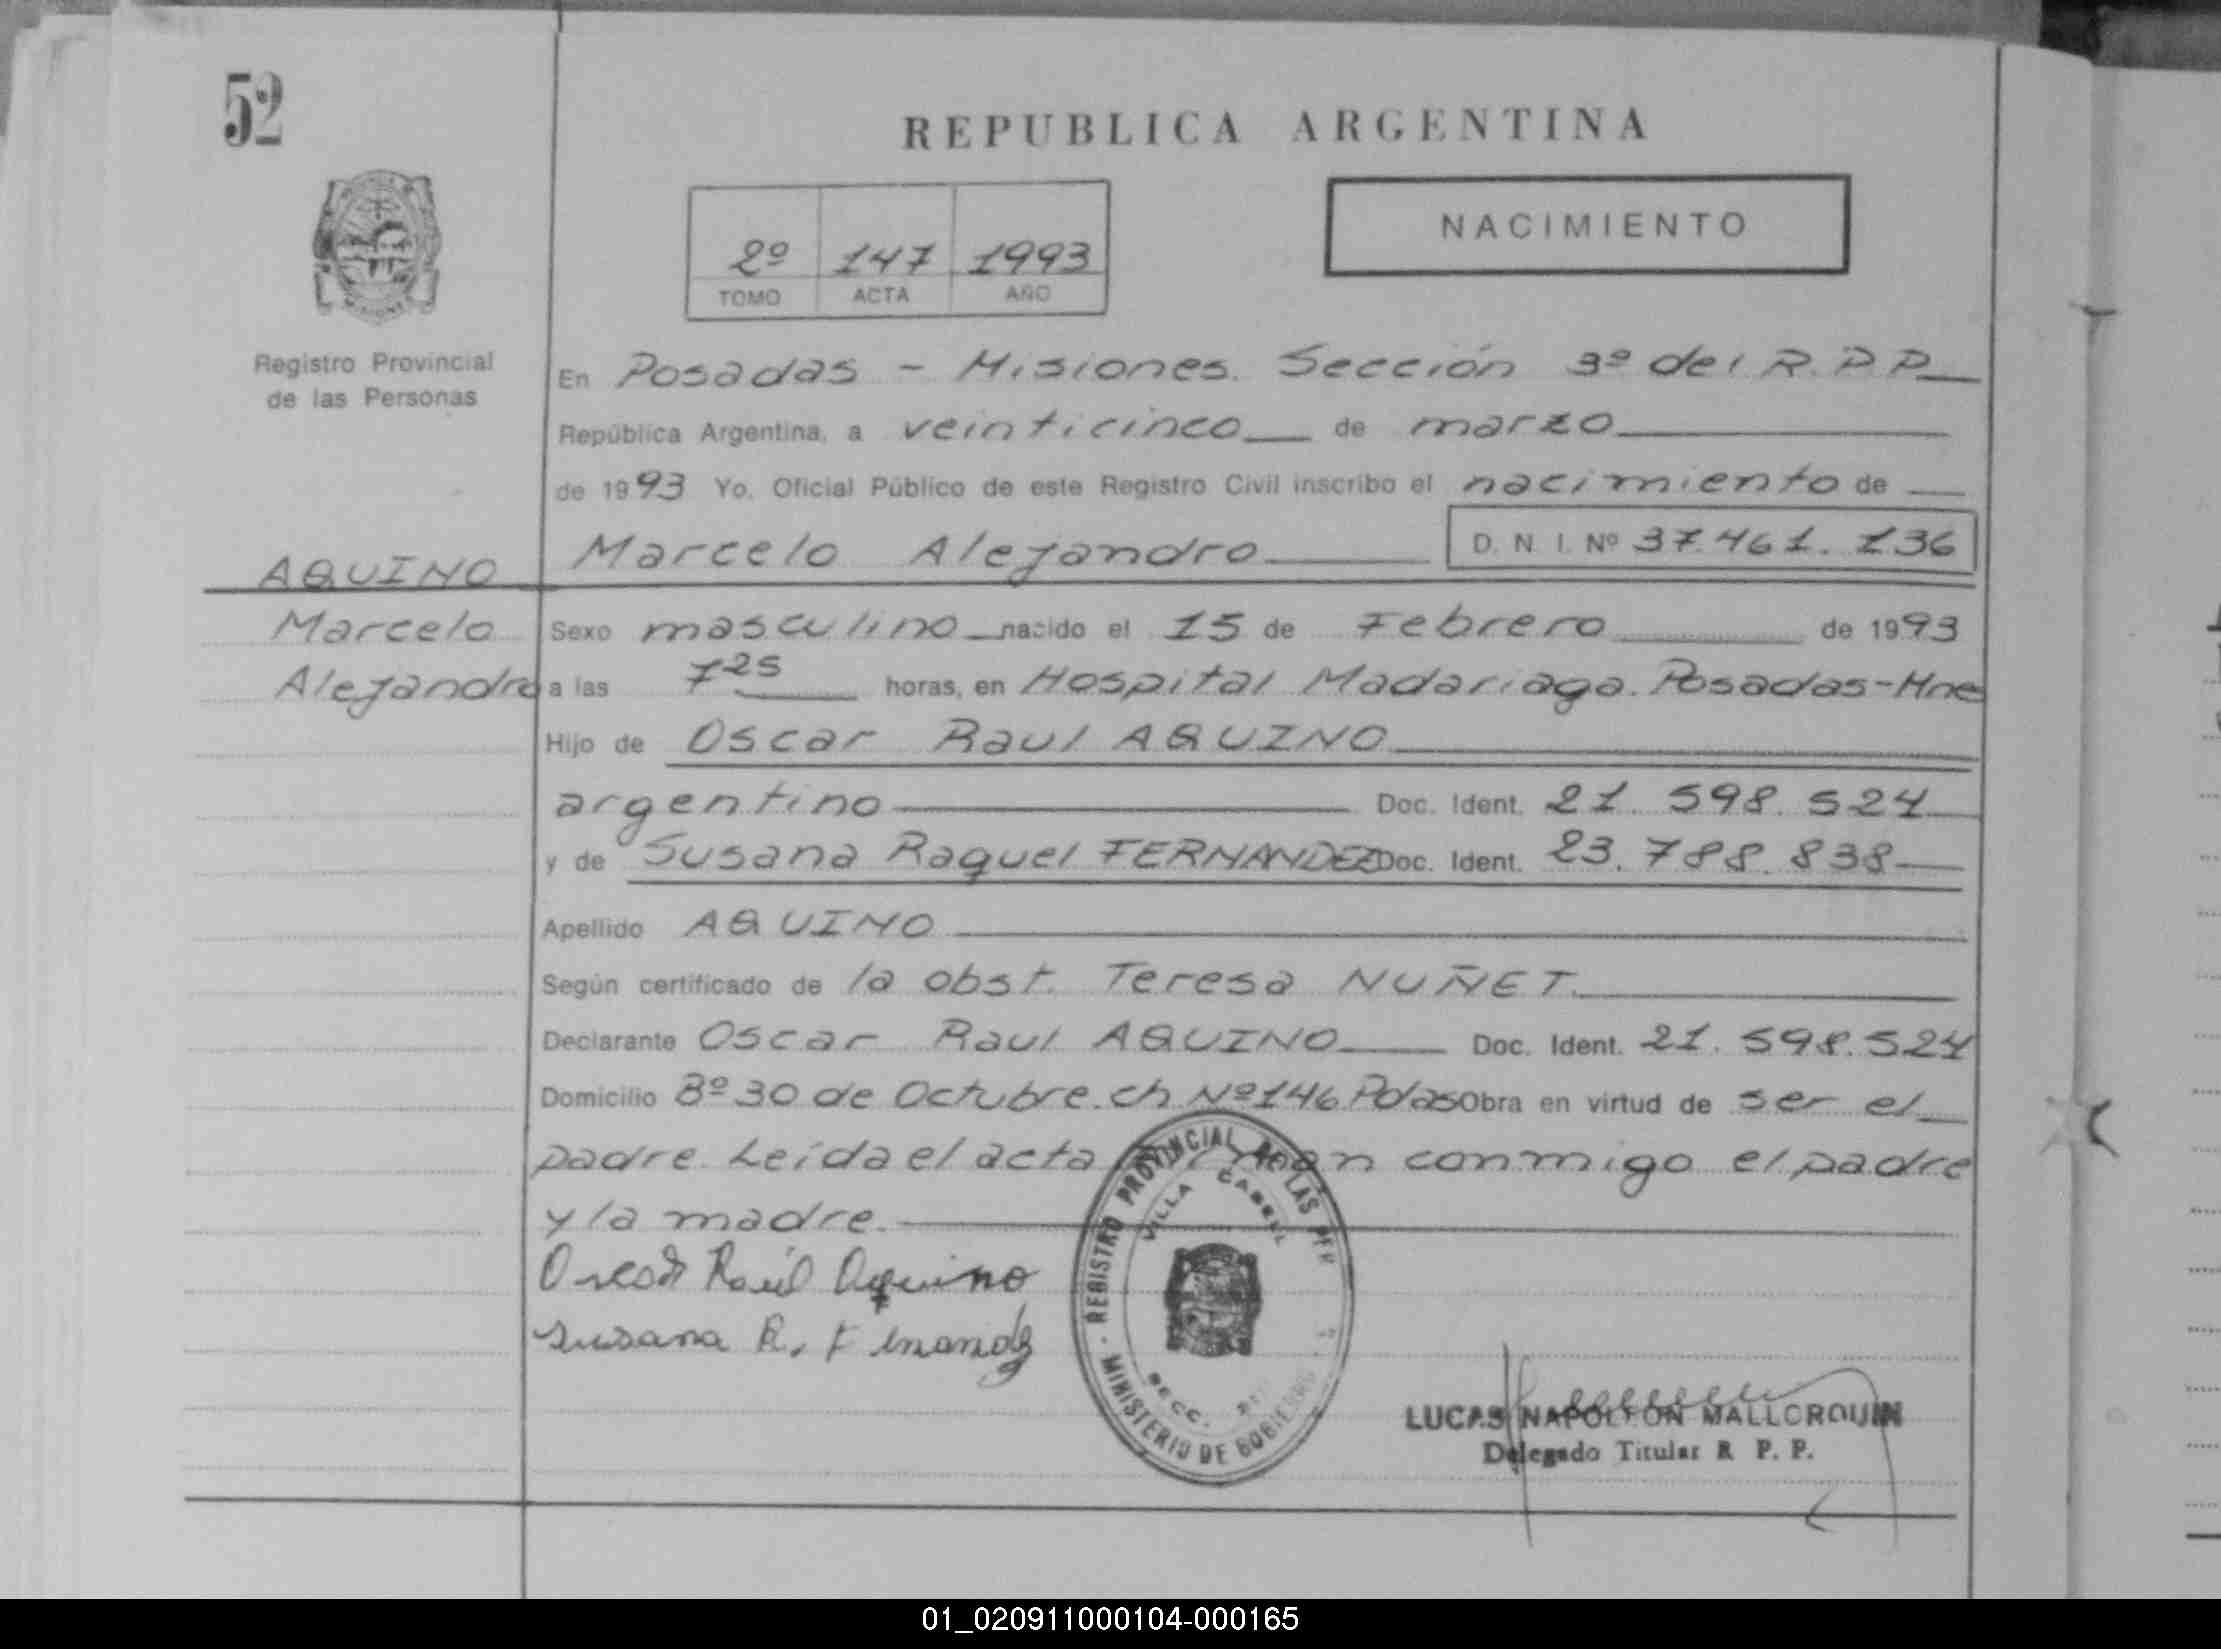 52
REPUBLICA ARGENTINA
2º 147 1993
TOMO ACTA AÑO
NACIMIENTO
Registro Provincial
de las Personas
En Posadas - Misiones. Sección 3º del R.P.P.
República Argentina, a veinticinco de marzo
de 1993 Yo, Oficial Público de este Registro Civil inscribo el nacimiento de
Marcelo Alejandro D. N. I. Nº 37.461.136
AQUINO
Marcelo
Alejandro
Sexo masculino nacido el 15 de Febrero de 1993
a las 7 25 horas, en Hospital Madariaga. Posadas-Mne
Hijo de Oscar Raul AQUINO
argentino Doc. Ident. 21.598.524
y de Susana Raquel FERNANDEZ Doc. Ident. 23.788.838
Apellido AQUINO
Según certificado de la obst. Teresa NUÑET.
Declarante Oscar Raul AQUINO Doc. Ident. 21.598.524
Domicilio Bº 30 de Octubre. ch Nº 146 Pdas Obra en virtud de ser el
padre. Leída el acta conmigo el padre
y la madre.
Oscar Raúl Aquino
Susana R.
REGISTRO PROVINCIAL DE LAS PER
VILLA CABELL
SECC.
MINISTERIO DE GOBIERNO
LUCAS NAPOLEON MALLORQUIN
Delegado Titular R P. P.
01_020911000104-000165